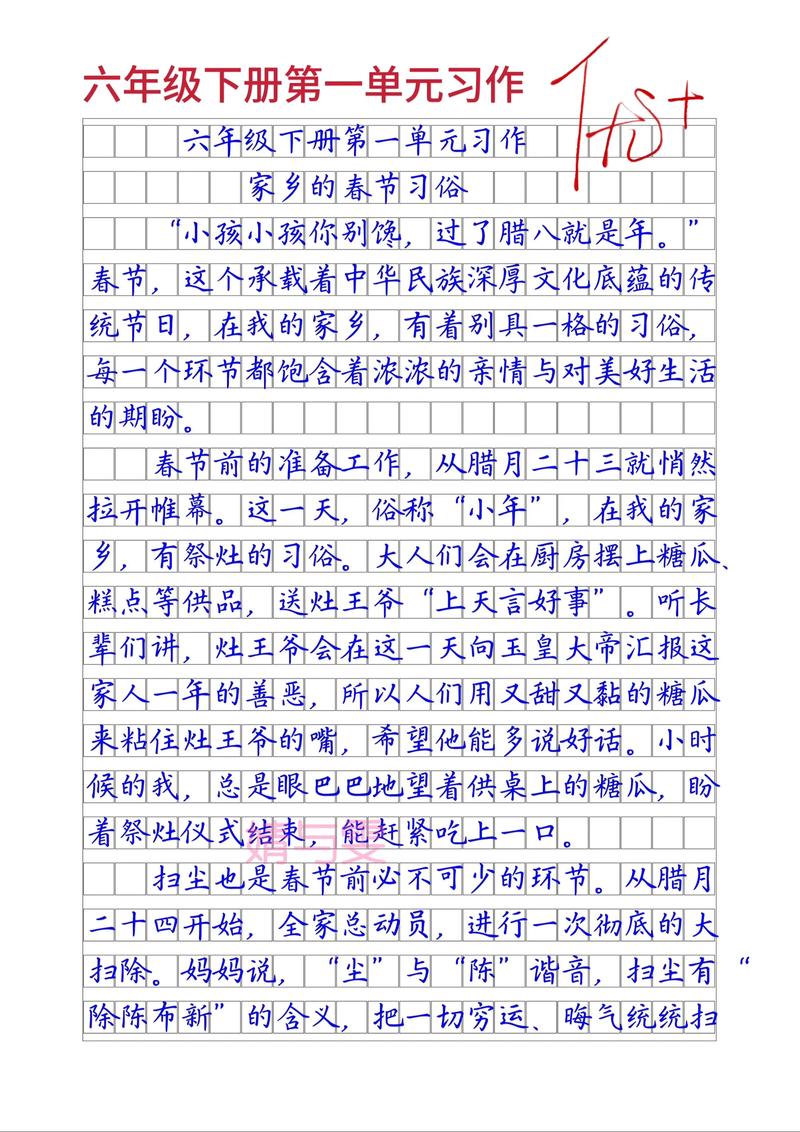 六年级下册第一单元习作
优+
六年级下册第一单元习作
家乡的春节习俗
“小孩小孩你别馋，过了腊八就是年。”
春节，这个承载着中华民族深厚文化底蕴的传
统节日，在我的家乡，有着别具一格的习俗，
每一个环节都饱含着浓浓的亲情与对美好生活
的期盼。
春节前的准备工作，从腊月二十三就悄然
拉开帷幕。这一天，俗称“小年”，在我的家
乡，有祭灶的习俗。大人们会在厨房摆上糖瓜、
糕点等供品，送灶王爷“上天言好事”。听长
辈们讲，灶王爷会在这一天向玉皇大帝汇报这
家人一年的善恶，所以人们用又甜又黏的糖瓜
来粘住灶王爷的嘴，希望他能多说好话。小时
候的我，总是眼巴巴地望着供桌上的糖瓜，盼
着祭灶仪式结束，能赶紧吃上一口。
婧与雯
扫尘也是春节前必不可少的环节。从腊月
二十四开始，全家总动员，进行一次彻底的大
扫除。妈妈说，“尘”与“陈”谐音，扫尘有“
除陈布新”的含义，把一切穷运、晦气统统扫